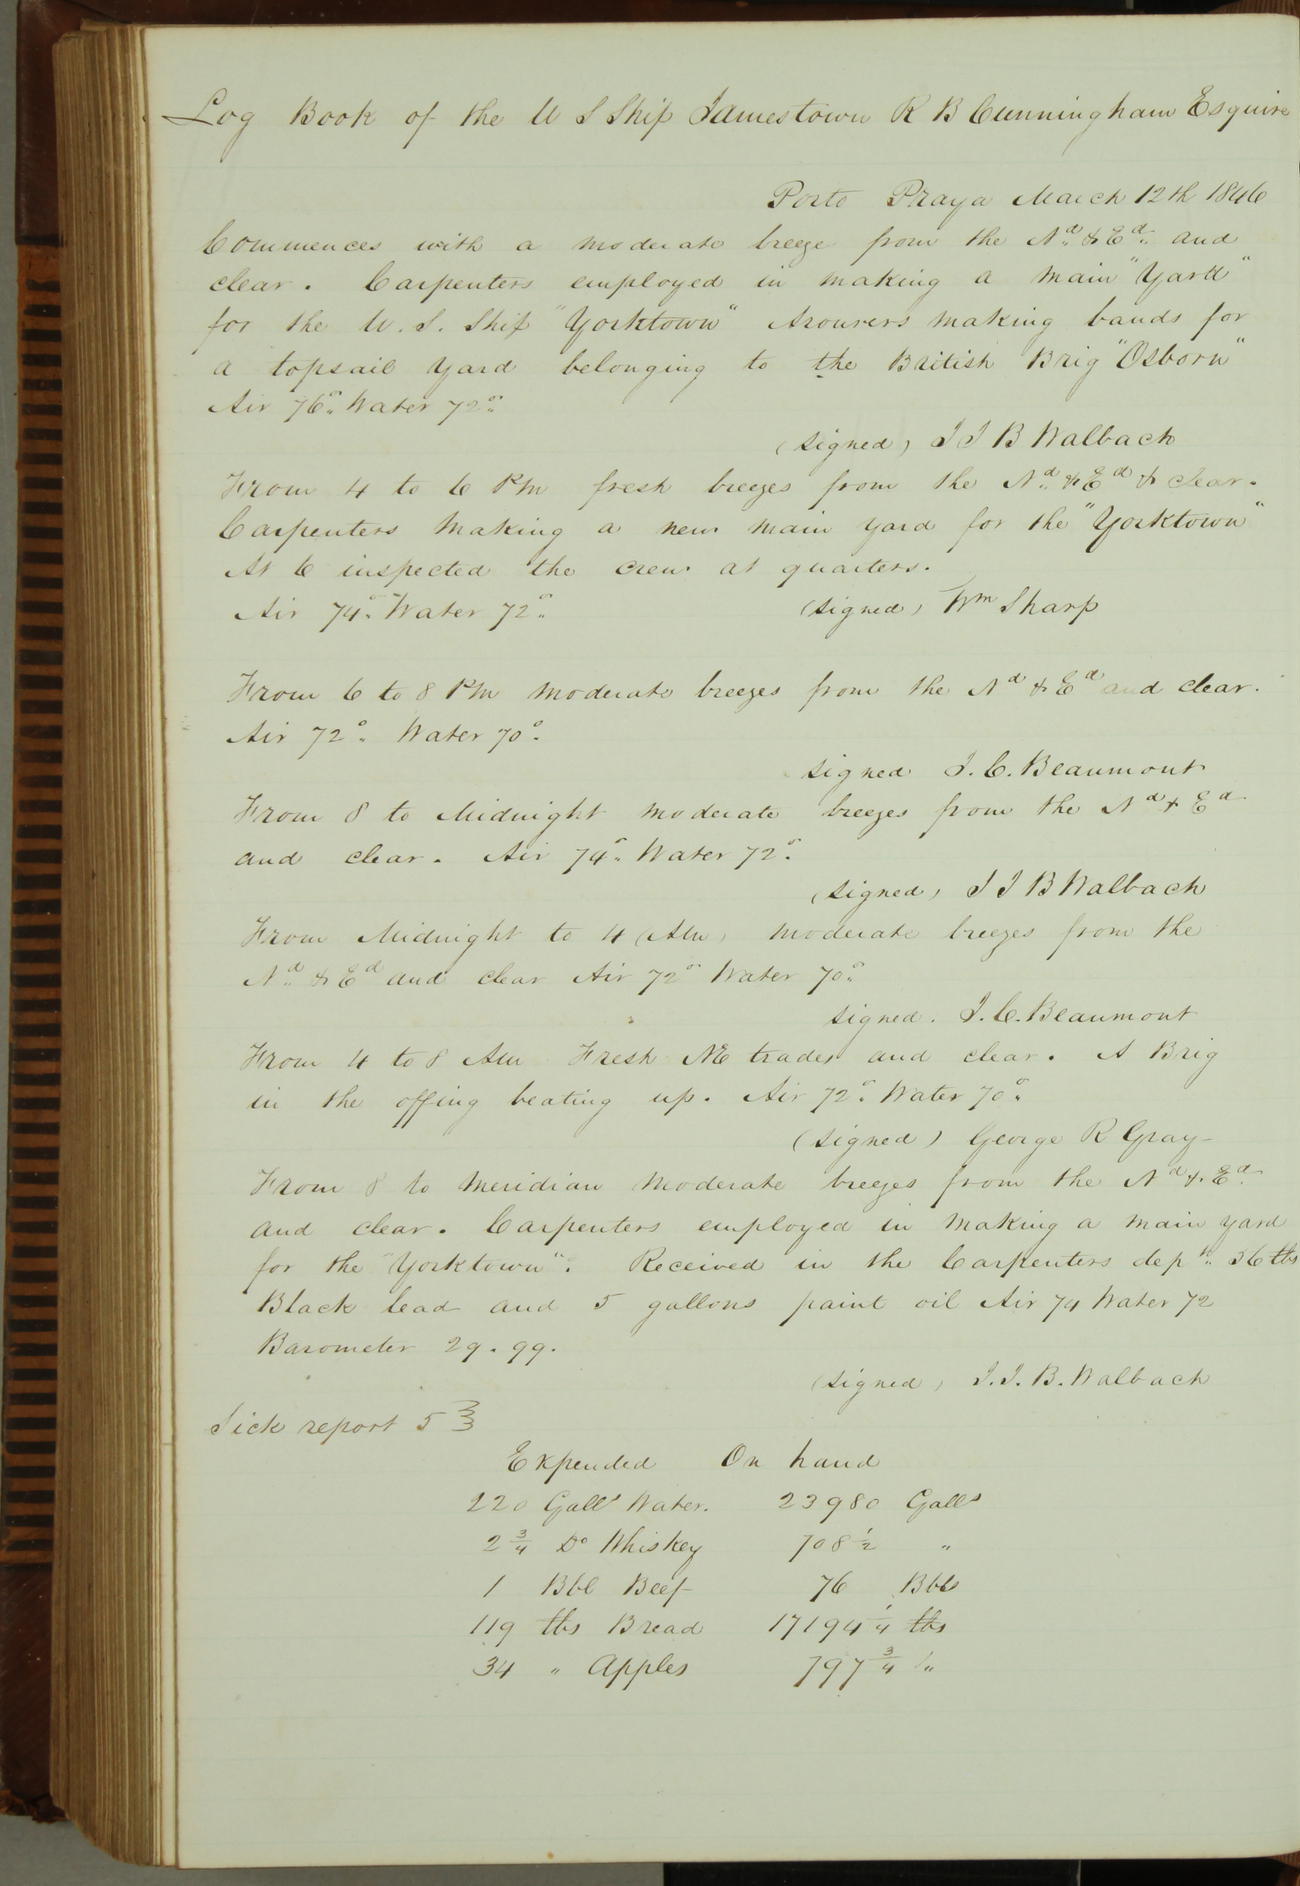 Log Book of the U S Ship Jamestown R B Cunningham Esquire
Porto Praya March 12th 1846
Commences with a moderate breeze from the Nd & Ed and
clear. Carpenters employed in making a main "Yard"
for the U. S. Ship "Yorktown" Armurers making bands for
a topsail Yard belonging to the British Brig "Osborn"
Air 76° Water 72°
(signed) J J B Walbach
From 4 to 6 PM fresh breezes from the Nd & Ed & clear.
Carpenters Making a new main yard for the "Yorktown"
At 6 inspected the crew at quarters.
Air 74° Water 72° (signed) Wm Sharp
From 6 to 8 PM moderate breezes from the Nd & Ed and clear.
Air 72° Water 70°
signed J. C. Beaumont
From 8 to Midnight moderate breezes from the Nd & Ed
and clear. Air 74° Water 72°
(signed) J J B Walbach
From Midnight to 4 (AM) moderate breezes from the
Nd & Ed and clear Air 72° Water 70°
signed. J. C. Beaumont
From 4 to 8 AM Fresh NE trades and clear. A Brig
in the offing beating up. Air 72° Water 70°
(signed) George R Gray
From 8 to Meridian Moderate breezes from the Nd & Ed
and clear. Carpenters employed in making a main yard
for the "Yorktown". Received in the Carpenters dept 56 lbs
Black lead and 5 gallons paint oil Air 74 Water 72
Barometer 29.99.
(signed) J. J. B. Walbach
Sick report 5
Expended On hand
220 Galls Water. 23980 Galls
2 3/4 Do Whiskey 708 1/2 "
1 Bbl Beef 76 Bbls
119 lbs Bread 17194 1/4 lbs
34 " Apples 797 3/4 "